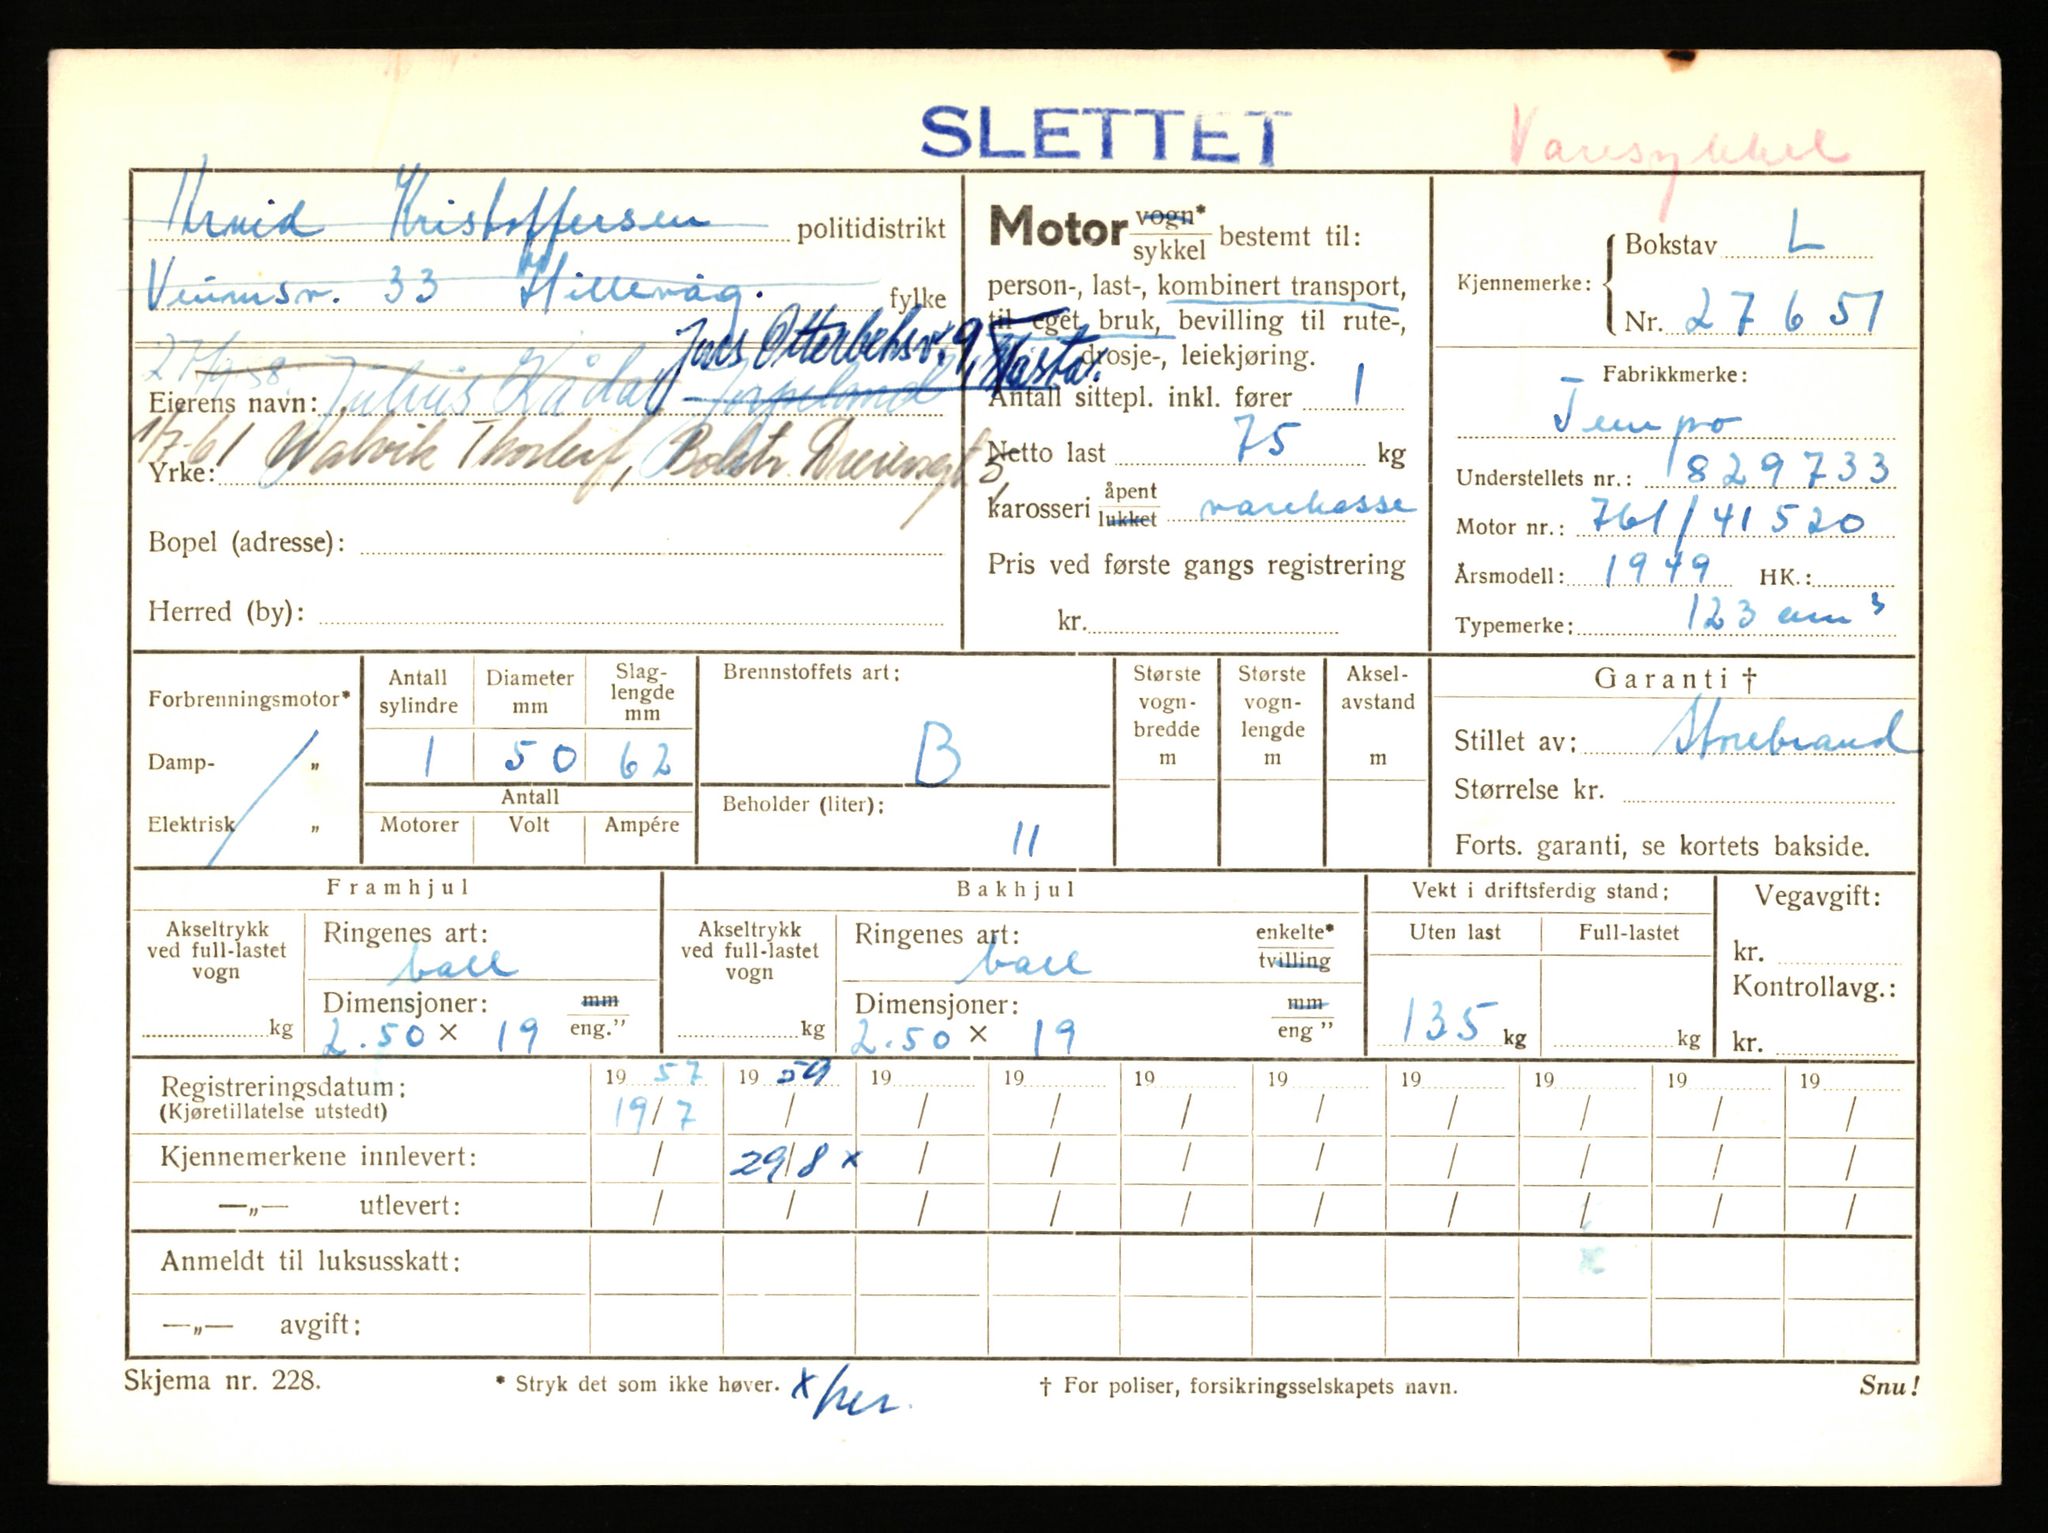 SLETTET
Varesykkel
Arvid Kristoffersen politidistrikt
33 Hillevåg. fylke
27/9 58. Julius Kådal Jørpeland
Jens Otterbeksv. 9, Tasta.
Eierens navn:
1/7-61 Walvik Thorleif,
Yrke:
Bopel (adresse):
Herred (by):
Motor vogn* sykkel bestemt til:
person-, last-, kombinert transport,
til eget bruk, bevilling til rute-,
drosje-, leiekjøring.
Antall sittepl. inkl. fører 1
Netto last 75 kg
karosseri åpent lukket varekasse
Pris ved første gangs registrering
kr.
Kjennemerke: Bokstav L
Nr. 27651
Fabrikkmerke:
Tempo
Understellets nr.: 829733
Motor nr.: 761/41520
Årsmodell: 1949 HK.:
Typemerke: 123 cm³
Forbrenningsmotor*
Damp- „
Elektrisk „
Antall sylindre Diameter mm Slag-lengde mm
1 50 62
Antall
Motorer Volt Ampére
Brennstoffets art:
B
Beholder (liter):
11
Største vogn-bredde m
Største vogn-lengde m
Aksel-avstand m
Garanti †
Stillet av: Storebrand
Størrelse kr.
Forts. garanti, se kortets bakside.
Framhjul
Akseltrykk ved full-lastet vogn
kg
Ringenes art:
ball
Dimensjoner: mm
2.50 × 19 eng.”
Bakhjul
Akseltrykk ved full-lastet vogn
kg
Ringenes art: enkelte*
ball tvilling
Dimensjoner: mm
2.50 × 19 eng ”
Vekt i driftsferdig stand:
Uten last Full-lastet
135 kg kg
Vegavgift:
kr.
Kontrollavg.:
kr.
Registreringsdatum: 19 57 19 59 19 19 19 19 19 19 19 19
(Kjøretillatelse utstedt) 19/7 / / / / / / / / /
Kjennemerkene innlevert: / 29/8 x / / / / / / / /
—„— utlevert: / / / / / / / / / /
Anmeldt til luksusskatt:
—„— avgift:
Skjema nr. 228.
* Stryk det som ikke høver. x her.
† For poliser, forsikringsselskapets navn.
Snu!